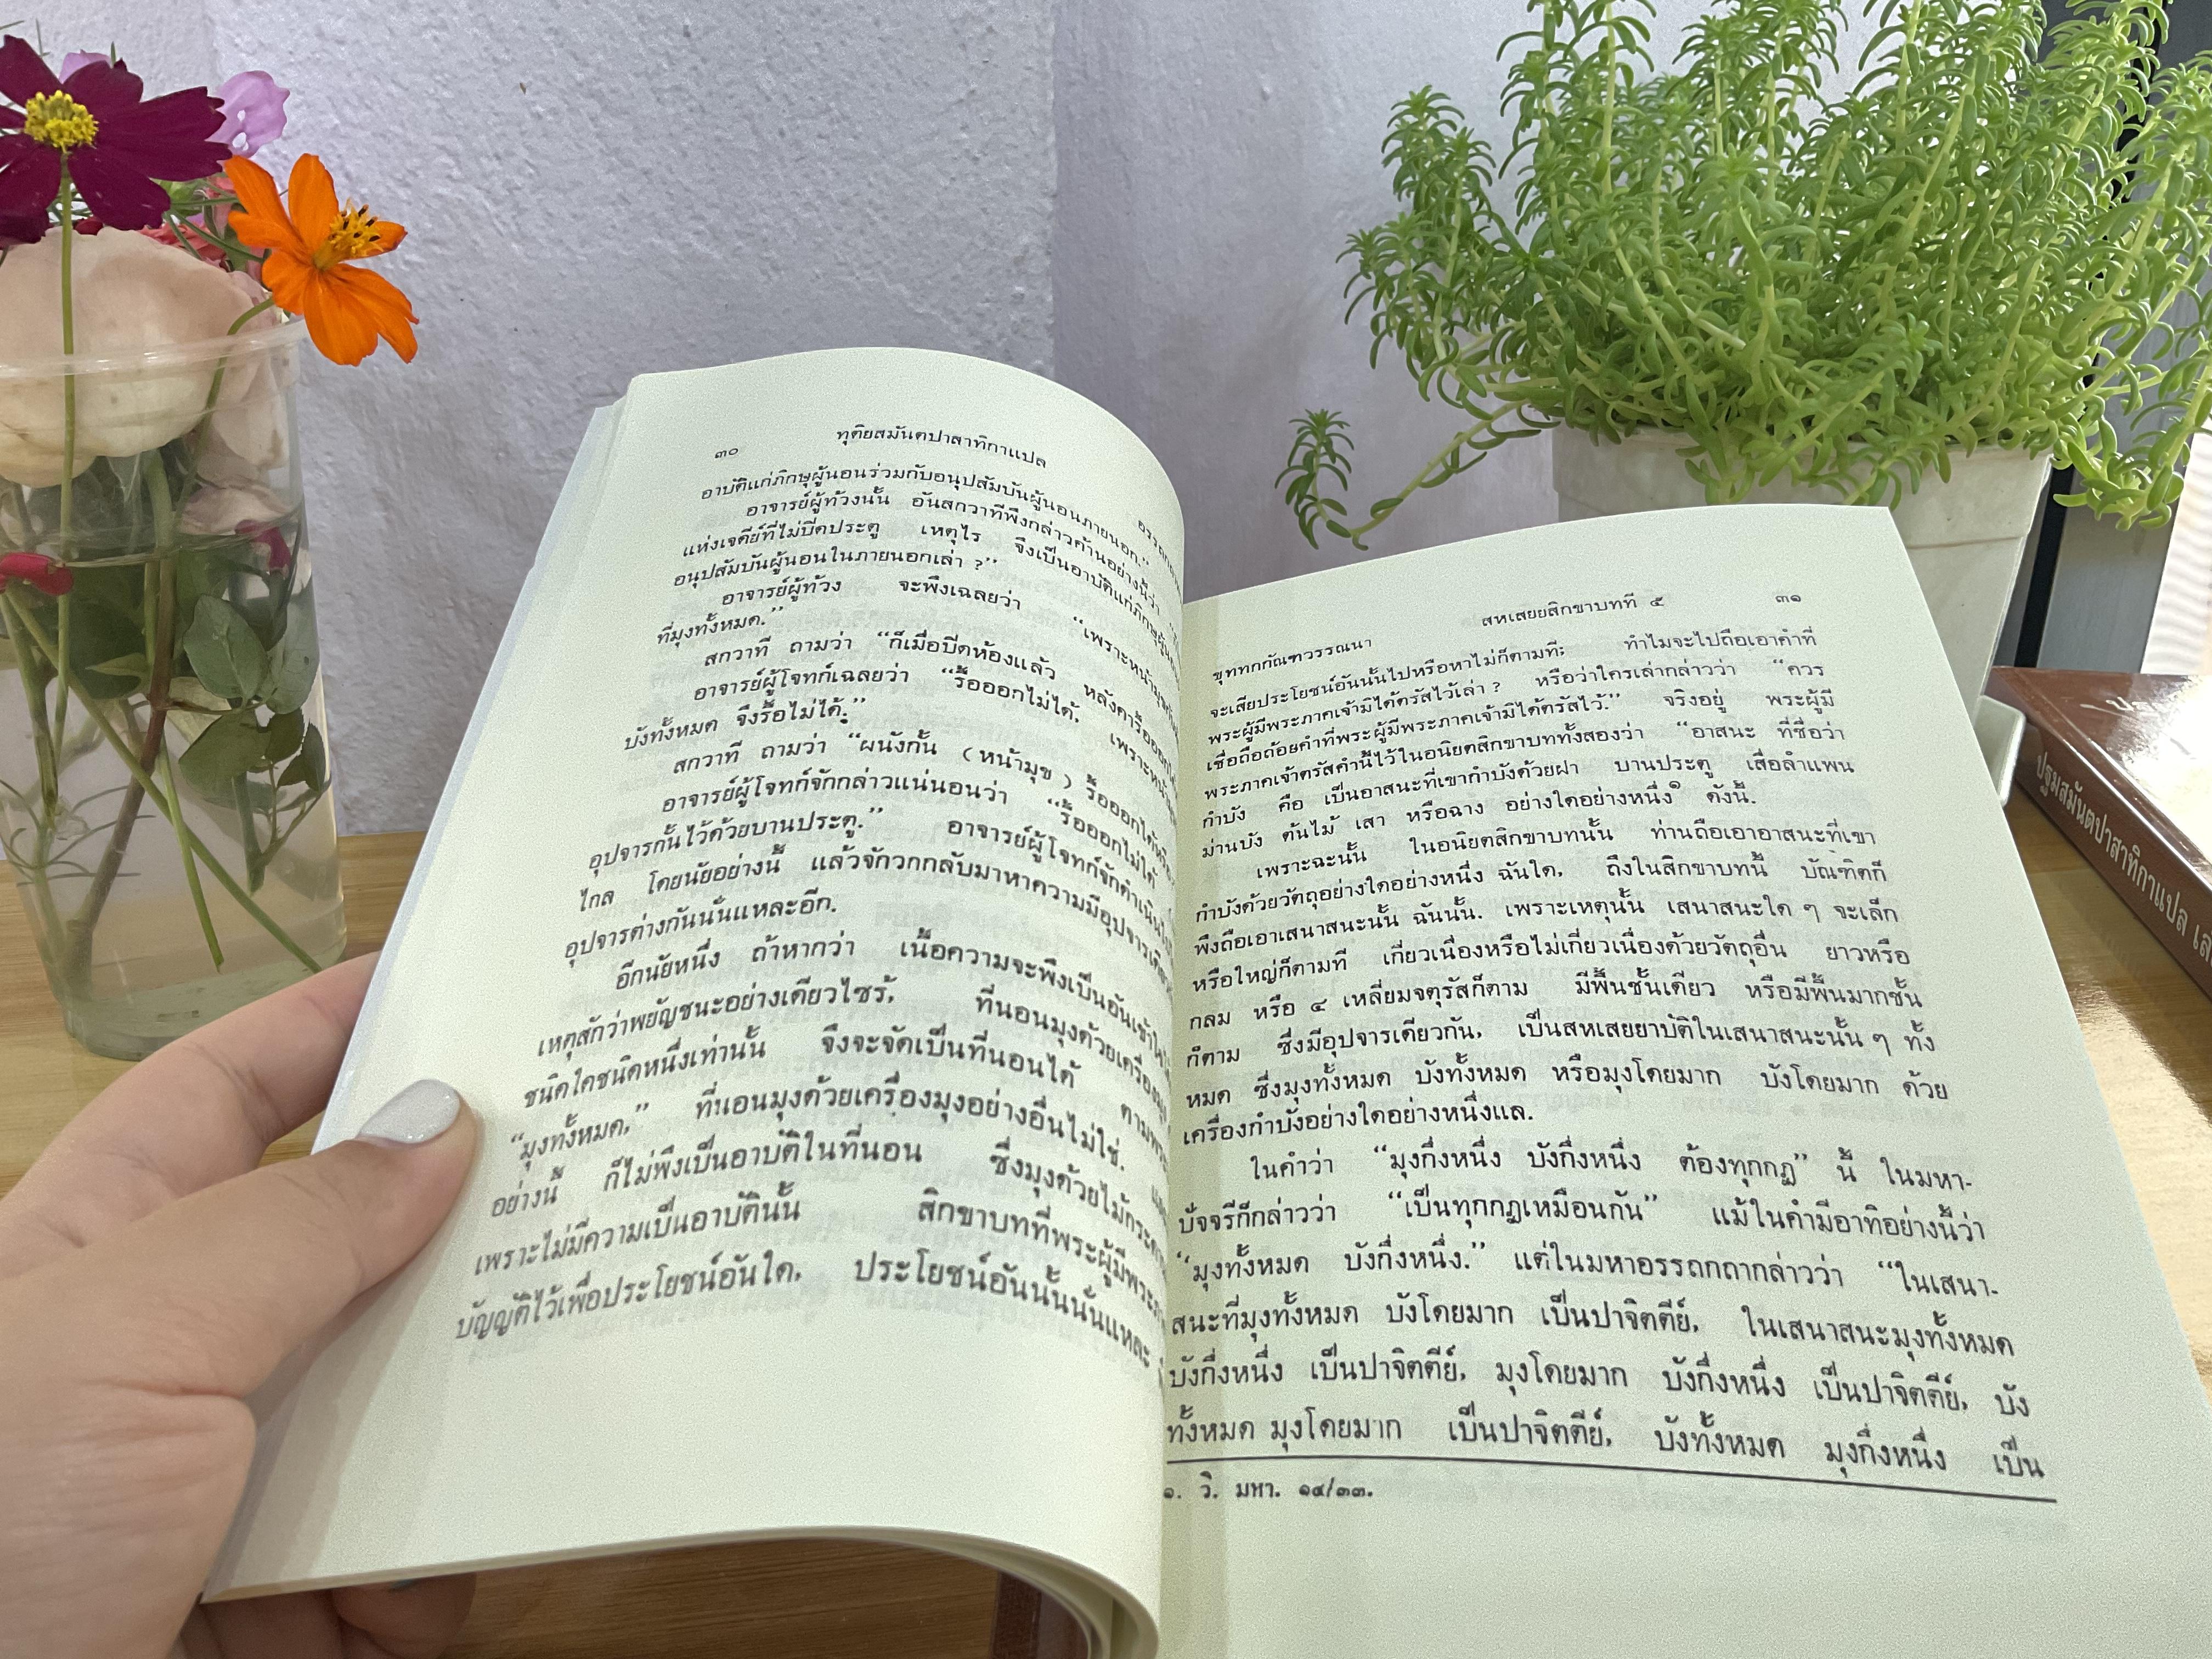 ๓๐ ทุติยสมันตปาสาทิกาแปล
อาบัติแก่ภิกษุผู้นอนร่วมกับอนุปสัมบันผู้นอนภายนอก.”
อาจารย์ผู้ท้วงนั้น อันสกวาทีพึงกล่าวค้านอย่างนี้ว่า
แห่งเจดีย์ที่ไม่ปิดประตู เหตุไร จึงเป็นอาบัติแก่ภิกษุผู้นอน
อนุปสัมบันผู้นอนในภายนอกเล่า ?”
อาจารย์ผู้ท้วง จะพึงเฉลยว่า “เพราะหน้ามุข
ที่มุงทั้งหมด.”
สกวาที ถามว่า “ก็เมื่อปิดห้องแล้ว หลังคารื้อออก
อาจารย์ผู้โจทก์เฉลยว่า “รื้อออกไม่ได้, เพราะ
บังทั้งหมด จึงรื้อไม่ได้.”
สกวาที ถามว่า “ผนังกั้น (หน้ามุข) รื้อออกได้หรือ
อาจารย์ผู้โจทก์จักกล่าวแน่นอนว่า “รื้อออกไม่ได้
อุปจารกั้นไว้ด้วยบานประตู.” อาจารย์ผู้โจทก์จักดำเนิน
ไกล โดยนัยอย่างนี้ แล้วจักวกกลับมาหาความมีอุปจารเดียว
อุปจารต่างกันนั่นแหละอีก.
อีกนัยหนึ่ง ถ้าหากว่า เนื้อความจะพึงเป็นอันเข้าใจ
เหตุสักว่าพยัญชนะอย่างเดียวไซร้, ที่นอนมุงด้วยเครื่องมุง
ชนิดใดชนิดหนึ่งเท่านั้น จึงจะจัดเป็นที่นอนได้ ตาม
“มุงทั้งหมด,” ที่นอนมุงด้วยเครื่องมุงอย่างอื่นไม่ใช่.
อย่างนี้ ก็ไม่พึงเป็นอาบัติในที่นอน ซึ่งมุงด้วยไม้กระดาน
เพราะไม่มีความเป็นอาบัตินั้น สิกขาบทที่พระผู้มีพระภา
บัญญัติไว้เพื่อประโยชน์อันใด, ประโยชน์อันนั้นนั่นแหละ
ขุททกกัณฑวรรณนา สหเสยยสิกขาบทที่ ๕ ๓๑
จะเสียประโยชน์อันนั้นไปหรือหาไม่ก็ตามที; ทำไมจะไปถือเอาคำที่
พระผู้มีพระภาคเจ้ามิได้ตรัสไว้เล่า ? หรือว่าใครเล่ากล่าวว่า “ควร
เชื่อถือถ้อยคำที่พระผู้มีพระภาคเจ้ามิได้ตรัสไว้.” จริงอยู่ พระผู้มี
พระภาคเจ้าตรัสคำนี้ไว้ในอนิยตสิกขาบททั้งสองว่า “อาสนะ ที่ชื่อว่า
กำบัง คือ เป็นอาสนะที่เขากำบังด้วยฝา บานประตู เสื่อลำแพน
ม่านบัง ต้นไม้ เสา หรือฉาง อย่างใดอย่างหนึ่ง๑ ดังนี้.
เพราะฉะนั้น ในอนิยตสิกขาบทนั้น ท่านถือเอาอาสนะที่เขา
กำบังด้วยวัตถุอย่างใดอย่างหนึ่ง ฉันใด, ถึงในสิกขาบทนี้ บัณฑิตก็
พึงถือเอาเสนาสนะนั้น ฉันนั้น. เพราะเหตุนั้น เสนาสนะใด ๆ จะเล็ก
หรือใหญ่ก็ตามที เกี่ยวเนื่องหรือไม่เกี่ยวเนื่องด้วยวัตถุอื่น ยาวหรือ
กลม หรือ ๔ เหลี่ยมจตุรัสก็ตาม มีพื้นชั้นเดียว หรือมีพื้นมากชั้น
ก็ตาม ซึ่งมีอุปจารเดียวกัน, เป็นสหเสยยาบัติในเสนาสนะนั้น ๆ ทั้ง
หมด ซึ่งมุงทั้งหมด บังทั้งหมด หรือมุงโดยมาก บังโดยมาก ด้วย
เครื่องกำบังอย่างใดอย่างหนึ่งแล.
ในคำว่า “มุงกึ่งหนึ่ง บังกึ่งหนึ่ง ต้องทุกกฏ” นี้ ในมหา-
ปัจจรีก็กล่าวว่า “เป็นทุกกฏเหมือนกัน” แม้ในคำมีอาทิอย่างนี้ว่า
“มุงทั้งหมด บังกึ่งหนึ่ง.” แต่ในมหาอรรถกถากล่าวว่า “ในเสนา-
สนะที่มุงทั้งหมด บังโดยมาก เป็นปาจิตตีย์, ในเสนาสนะมุงทั้งหมด
บังกึ่งหนึ่ง เป็นปาจิตตีย์, มุงโดยมาก บังกึ่งหนึ่ง เป็นปาจิตตีย์, บัง
ทั้งหมด มุงโดยมาก เป็นปาจิตตีย์, บังทั้งหมด มุงกึ่งหนึ่ง เป็น
๑. วิ. มหา. ๑๔/๓๓.
ปฐมสมันตปาสาทิกาแปล